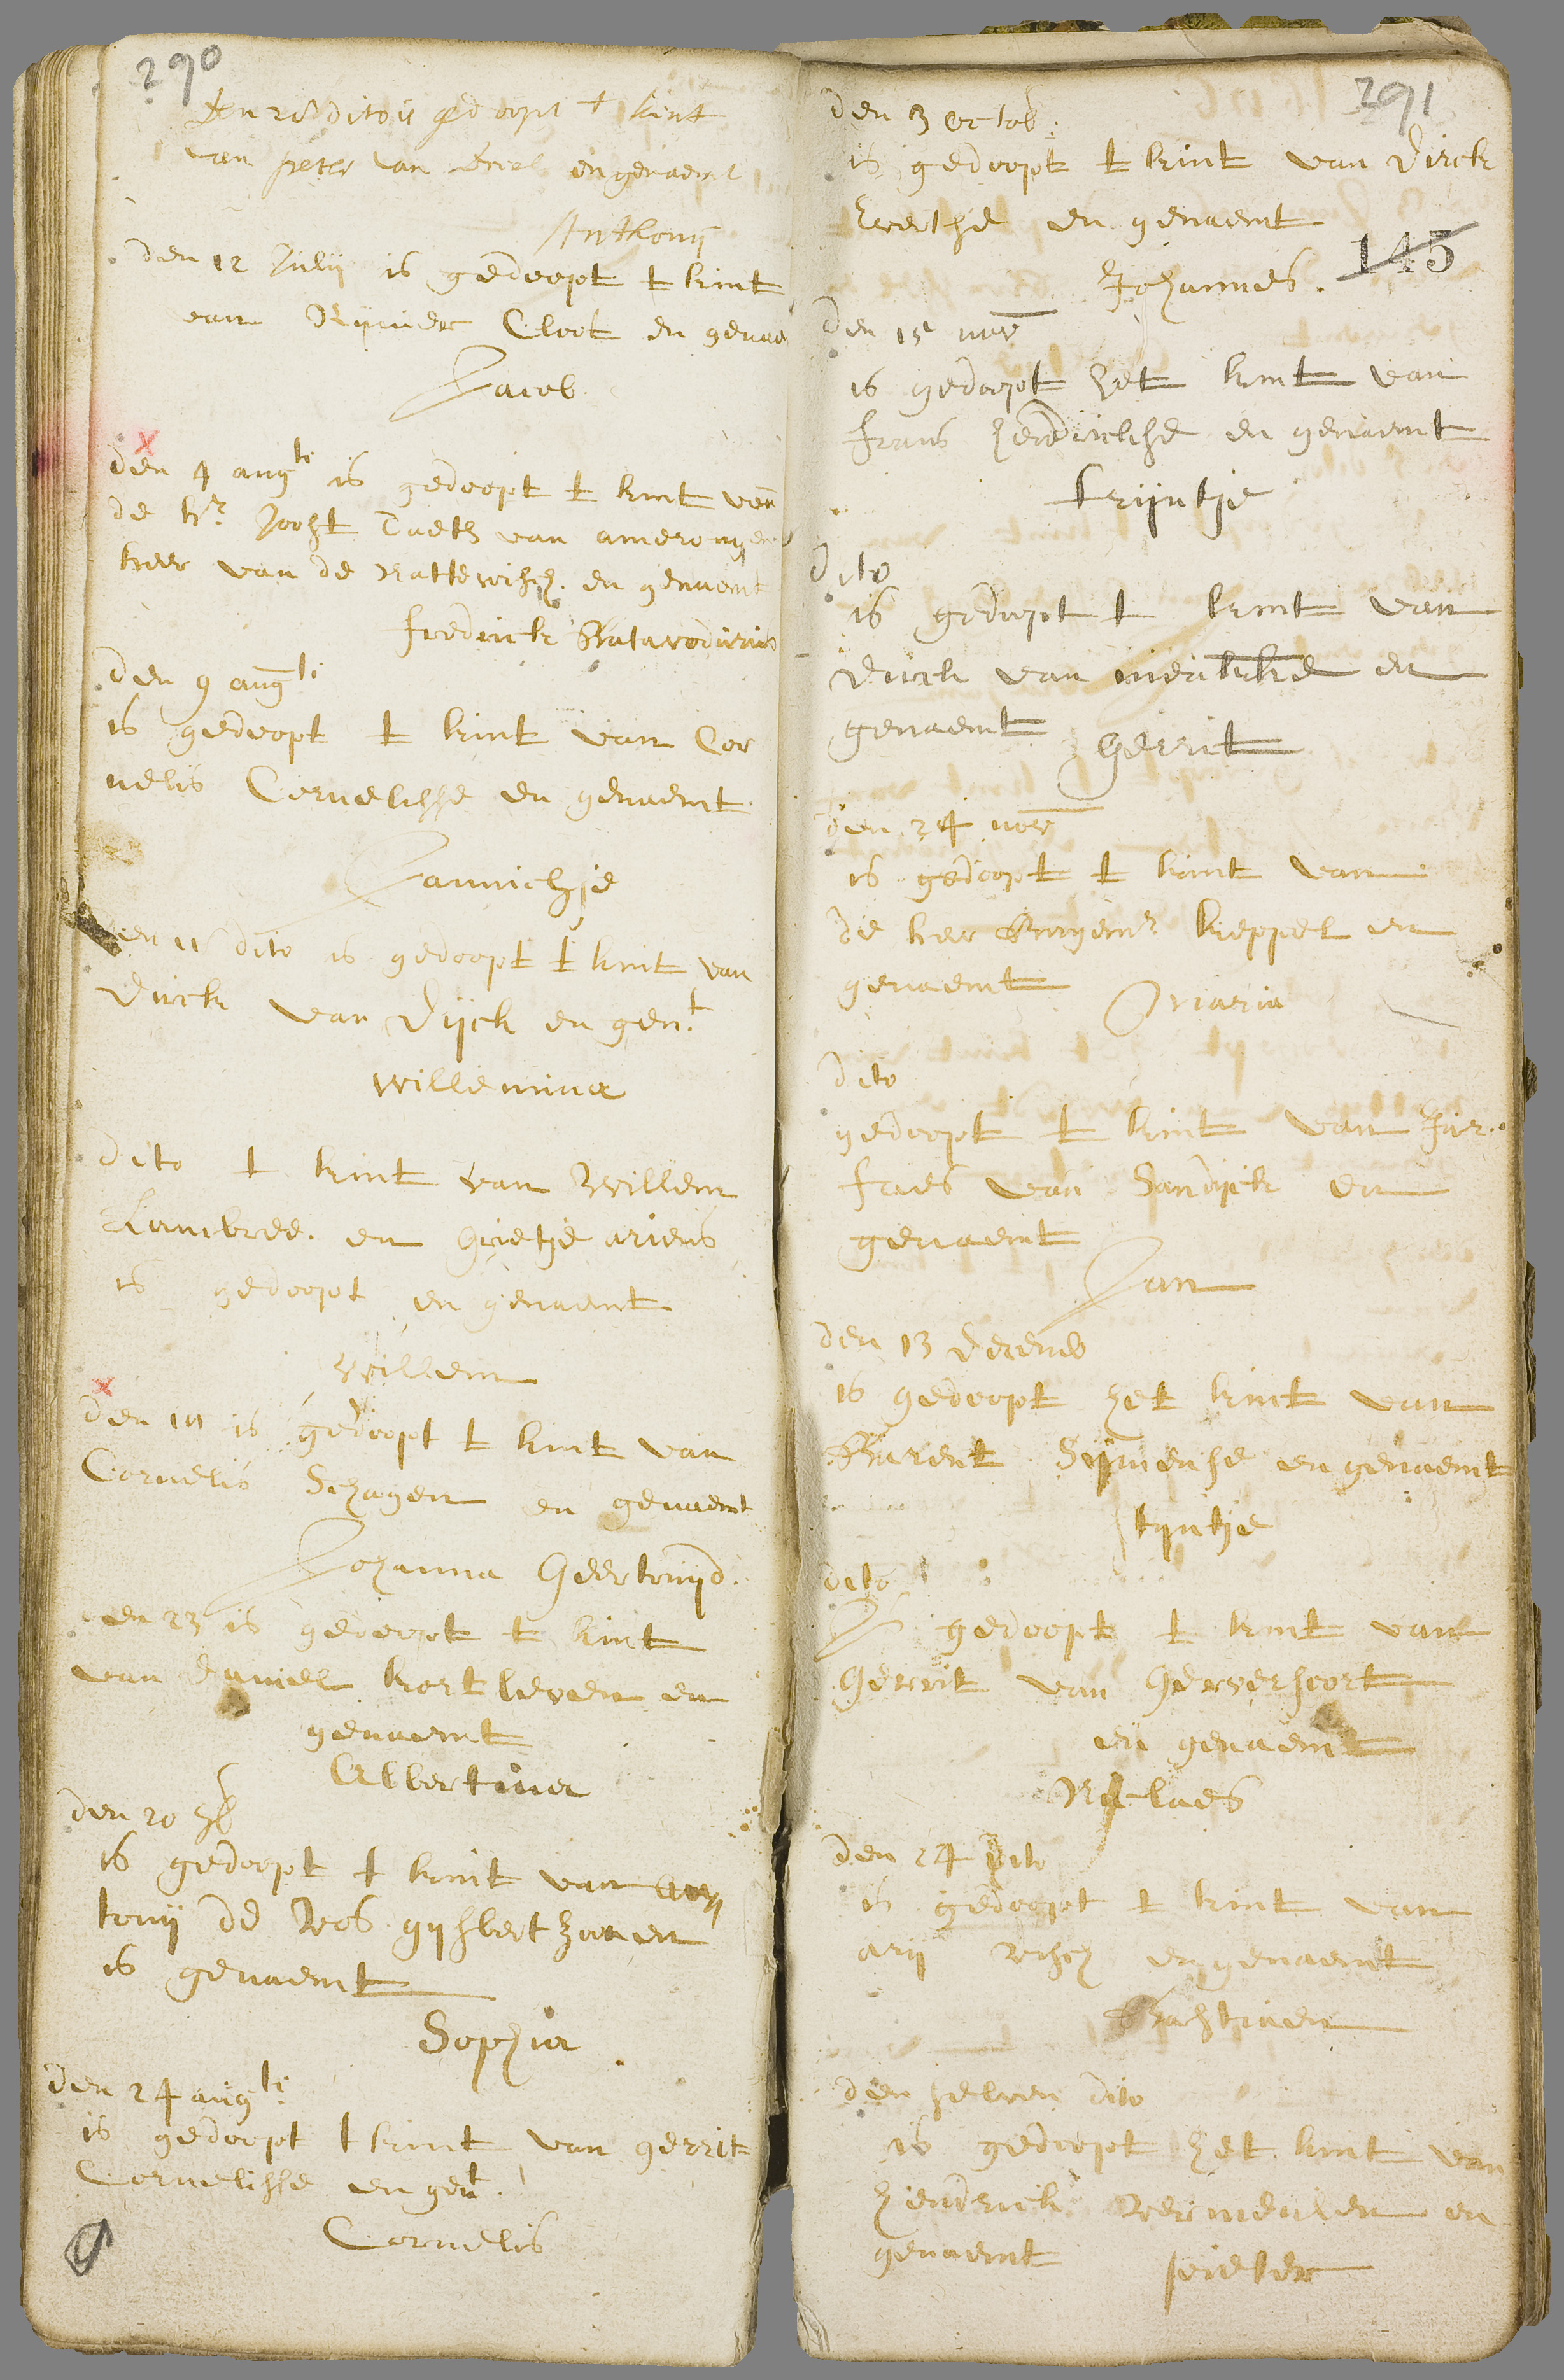 290
Den 28 dito is gedoopt t kint
van peter van Driel en genaemt
Anthonij
den 12 Julij is gedoopt t kint
van Rijnder Cloot en genae
Jacob
den 4 augti is gedoopt t kint van
de hr Joost Taets van amerongen
heer van de Nattewisch. en genaemt
fredrick Batavodurus
den 9 augti
is gedoopt t kint van Cor
nelis Cornelisse en genaemt
Jannichje
den 11 dito is gedoopt t kint van
Dirck van Dijck en gent
willemina
dito t kint van Willem
Lambree. en Grietje ariens
is gedoopt en genaemt
Willem
den is gedoopt t kint van
Cornelis Schagen en genaemt
Johanna Geertruijd.
den 23 is gedoopt t kint
van Daniel kortleven en
genaemt
Albertina
den 20
is gedoopt t kint van an
tonij de Vos gijsbertzoon en
is genaemt
Sophia
den 24 augti
is gedoopt t kint van gerrit
Cornelisse en gent.
Cornelis
291
den 3 octob:
is gedoopt t kint van Dirck
Evertse en genaemt
145
Johannes.
den 15 nov
is gedoopt het kint van
frans hendrickse en genaemt
trijntje
Dito
is gedoopt t kint van
Dirck van en
genaemt Gerrit
den 24 nov
is gedoopt t kint van
de heer Burgemr keppel en
genaemt Maria
dito
gedoopt t kint van
faes van Sandijck en
genaemt
Jan
den 13 decemb
is gedoopt het kint van
Barent Sijmense en genaemt
stijntje
dito
Is gedoopt t kint van
Gerrit van Gerverscort
en genaemt
Niclaes
den 24 dito
is gedoopt t kint van
arij en genaemt
den selven dito
is gedoopt het kint van
hendrick Vermeulen en
genaemt peieter